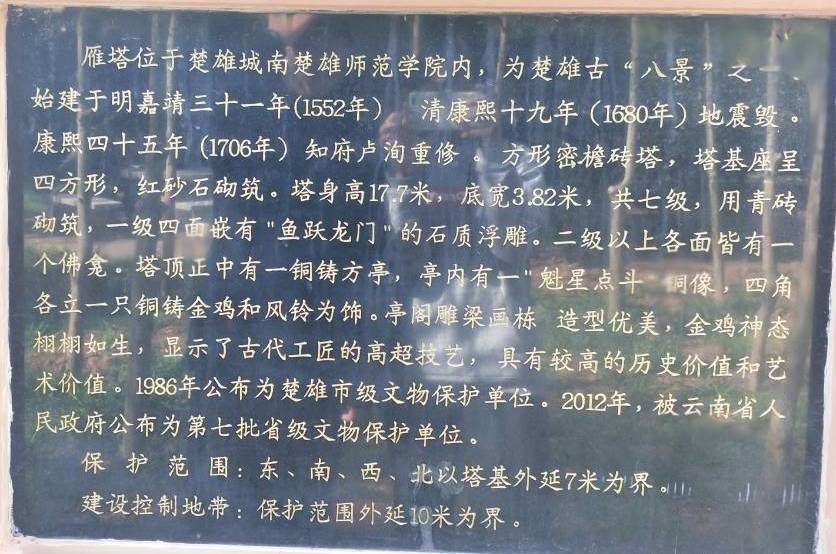 雁塔位于楚雄城南楚雄师范学院内，为楚雄古“八景”之一、
始建于明嘉靖三十一年(1552年） 清康熙十九年（1680年）地震毁。
康熙四十五年（1706年）知府卢洵重修。方形密檐砖塔，塔基座呈
四方形，红砂石砌筑。塔身高17.7米，底宽3.82米，共七级，用青砖
砌筑，一级四面嵌有"鱼跃龙门"的石质浮雕。二级以上各面皆有一
个佛龛。塔顶正中有一铜铸方亭，亭内有一"魁星点斗 铜像，四角
各立一只铜铸金鸡和风铃为饰。亭阁雕梁画栋 造型优美，金鸡神态
栩栩如生，显示了古代工匠的高超技艺，具有较高的历史价值和艺
术价值。1986年公布为楚雄市级文物保护单位。2012年，被云南省人
民政府公布为第七批省级文物保护单位。
保护范围：东、南、西、北以塔基外延7米为界。
建设控制地带：保护范围外延10米为界。